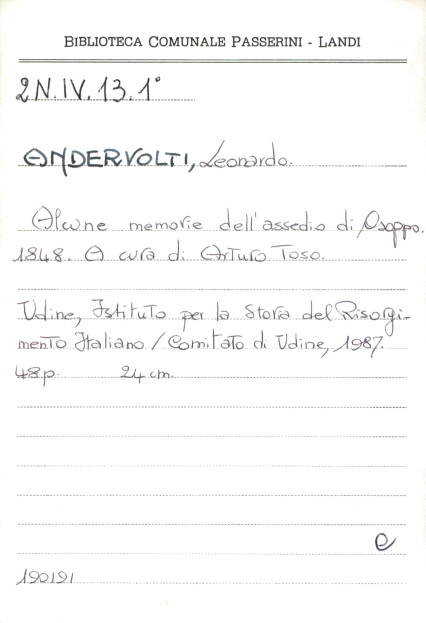 BIBLIOTECA COMUNALE PASSERINI - LANDI
2N.IV.13.1°
ANDERVOLTI, Leonardo.
Alcune memorie dell'assedio di Osoppo.
1848. A cura di Arturo Toso.
Udine, Istituto per la Storia del Risorgi-
mento Italiano / Comitato di Udine, 1987.
48p. 24 cm.
e
190191